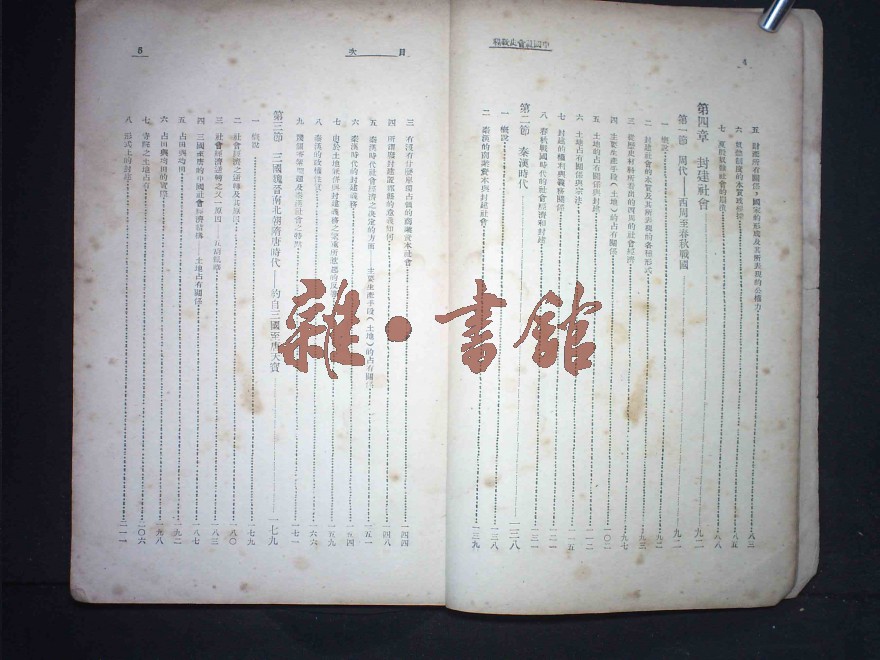 4
五 財產所有關係，國家的形成及其所表現的公權力 八三
六 氏族制度的本質 八五
七 八八
第四章 封建社會 九二
第一節 周代——西周至春秋戰國 九二
一 概說 九二
二 封建社會的本質及其所表現的各種形式 九三
三 從歷史材料所看出的西周的社會經濟 九七
四 主要生產手段（土地）的占有關係 一〇二
五 土地的占有關係與封建 一一二
六 土地占有關係與宗法 一一五
七 封建的權利與義務關係 一二一
八 春秋戰國時代的社會經濟和封建 一三一
第二節 秦漢時代 一三八
一 概說 一三八
二 秦漢的商業資本與封建社會 一三九
目次 5
三 有沒有什麼單獨占領的商業資本社會 一四四
四 所謂廢封建置郡縣的意義如何 一四八
五 秦漢時代社會經濟之決定的方面——主要生產手段（土地）的占有關係 一五一
六 秦漢時代的封建義務 一五四
七 由於土地關係與封建義務之 一五九
八 秦漢的政權性質 一六六
九 一七一
第三節 三國魏晉南北朝隋唐時代——約自三國至唐天寶 一七九
一 概說 一七九
二 社會經濟之逆轉及其原因 一八〇
三 社會經濟逆轉之又一原因——五胡 一八三
四 三國至唐的中國社會經濟結構——土地占有關係 一八七
五 占田與均田 一九二
六 占田與均田的實際 一九八
七 寺院之土地占有 二〇六
八 形式上的封建 二一一
雜·書館